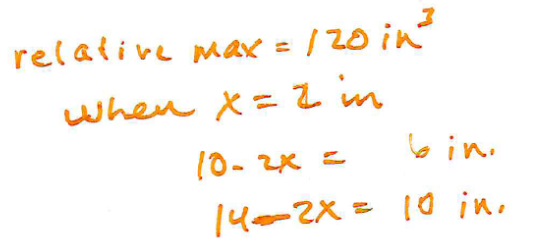 relative max = 120 in³
when x = 2 in
10-2x = 6 in.
14-2x = 10 in.